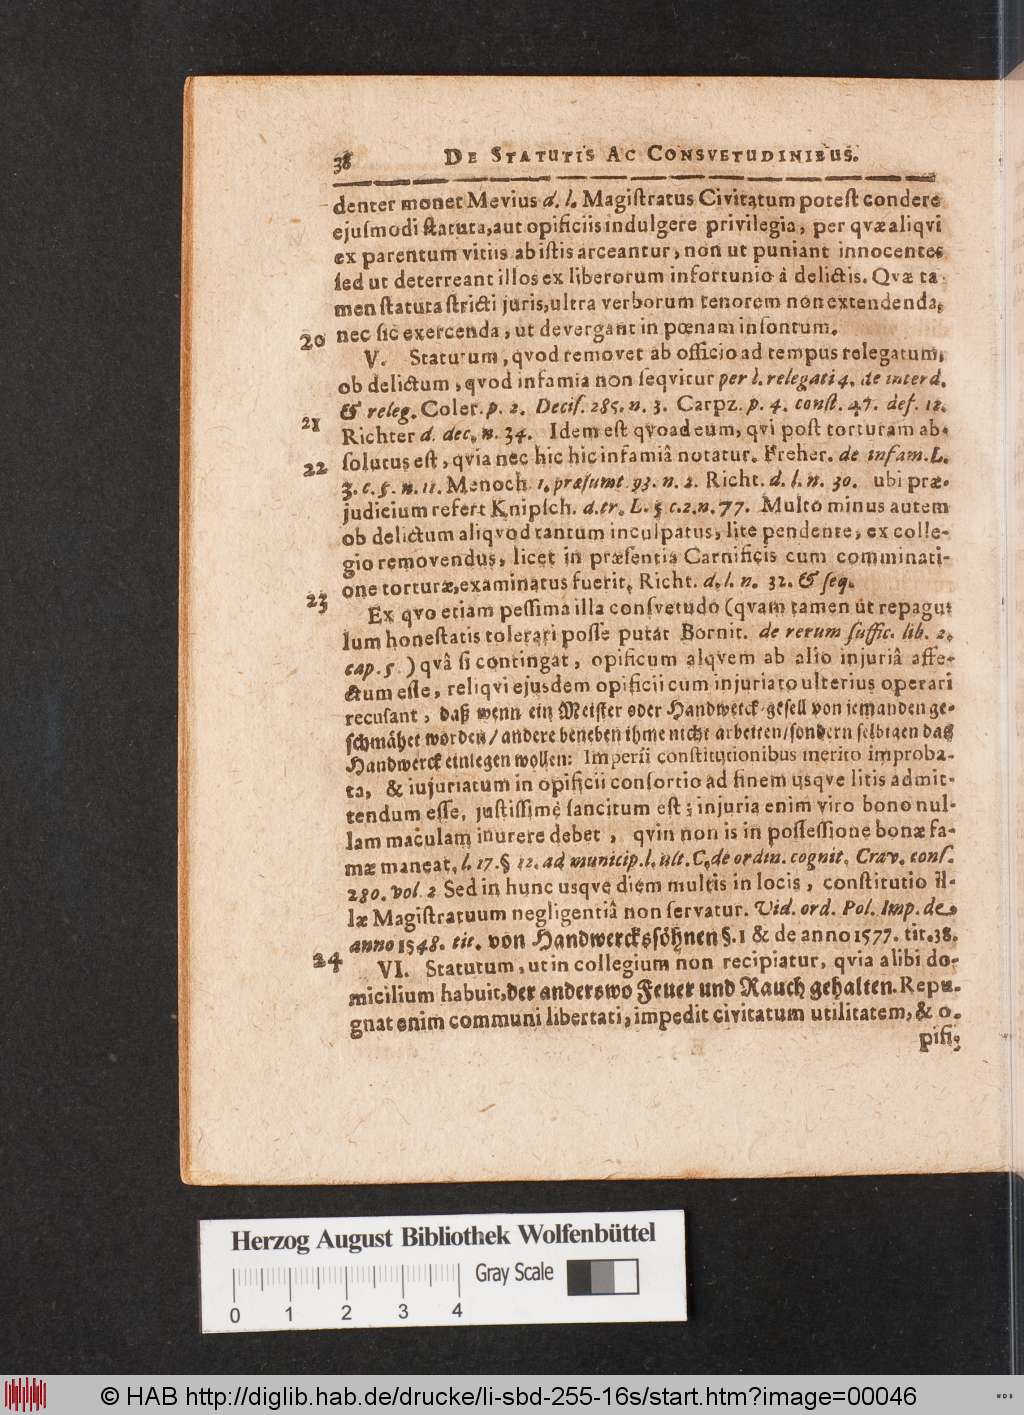 38 DE STATUTIS AC CONSVETUDINIBUS.
denter monet Mevius d. l. Magiſtratus Civitatum poteſt condere
ejuſmodi ſtatuta, aut opificiis indulgere privilegia, per qvæ aliqvi
ex parentum vitiis ab iſtis arceantur, non ut puniant innocentes
ſed ut deterreant illos ex liberorum infortunio â delictis. Qvæ ta
men ſtatuta ſtricti juris, ultra verborum tenorem non extendenda,
20 nec ſic exercenda, ut devergant in pœnam inſontum.
V. Statutum, qvod removet ab officio ad tempus relegatum,
ob delictum, qvod infamia non ſeqvitur per l. relegati 4. de interd.
& releg. Coler. p. 2. Deciſ. 285. n. 3. Carpz. p. 4. conſt. 47. def. 12.
21 Richter d. dec. n. 34. Idem eſt qvoad eum, qvi poſt torturam ab-
22 ſolutus eſt, qvia nec hic hic infamiâ notatur. Freher. de infam. L.
3. c. 5. n. 11. Menoch. 1. præſumt. 93. n. 2. Richt. d. l. n. 30. ubi præ-
judicium refert Knipſch. d. tr. L. 5 c. 2. n. 77. Multo minus autem
ob delictum aliqvod tantum inculpatus, lite pendente, ex colle-
gio removendus, licet in præſentia Carnificis cum comminati-
23 one torturæ, examinatus fuerit, Richt. d. l. n. 32. & ſeq.
Ex qvo etiam peſſima illa conſvetudo (qvam tamen ut repagu
lum honeſtatis tolerari poſſe putat Bornit. de rerum ſuffic. lib. 2.
cap. 5.) qvâ ſi contingat, opificum alqvem ab alio injuriâ affe-
ctum eſſe, reliqvi ejusdem opificii cum injuriato ulterius operari
recuſant, daß wenn ein Meiſter oder Handwerck-geſell von iemanden ge-
ſchmähet worden/ andere beneben ihme nicht arbeiten/ ſondern ſelbigen das
Handwerck einlegen wollen: Imperii conſtitutionibus merito improba-
ta, & iujuriatum in opificii conſortio ad finem usqve litis admit-
tendum eſſe, juſtiſſime ſancitum eſt; injuria enim viro bono nul-
lam maculam inurere debet, qvin non is in poſſeſſione bonæ fa-
mæ maneat, l. 17. § 12. ad municip. l. ult. C. de ordin. cognit. Crav. conſ.
280. vol. 2 Sed in hunc usqve diem multis in locis, conſtitutio il-
læ Magiſtratuum negligentiâ non ſervatur. Vid. ord. Pol. Imp. de
anno 1548. tit. von Handwercksſöhnen §. 1 & de anno 1577. tit. 38.
24 VI. Statutum, ut in collegium non recipiatur, qvia alibi do-
micilium habuit, der anderswo Feuer und Rauch gehalten. Repu-
gnat enim communi libertati, impedit civitatum utilitatem, & o-
pifi-
Herzog August Bibliothek Wolfenbüttel
Gray Scale
0 1 2 3 4
© HAB http://diglib.hab.de/drucke/li-sbd-255-16s/start.htm?image=00046
WDB